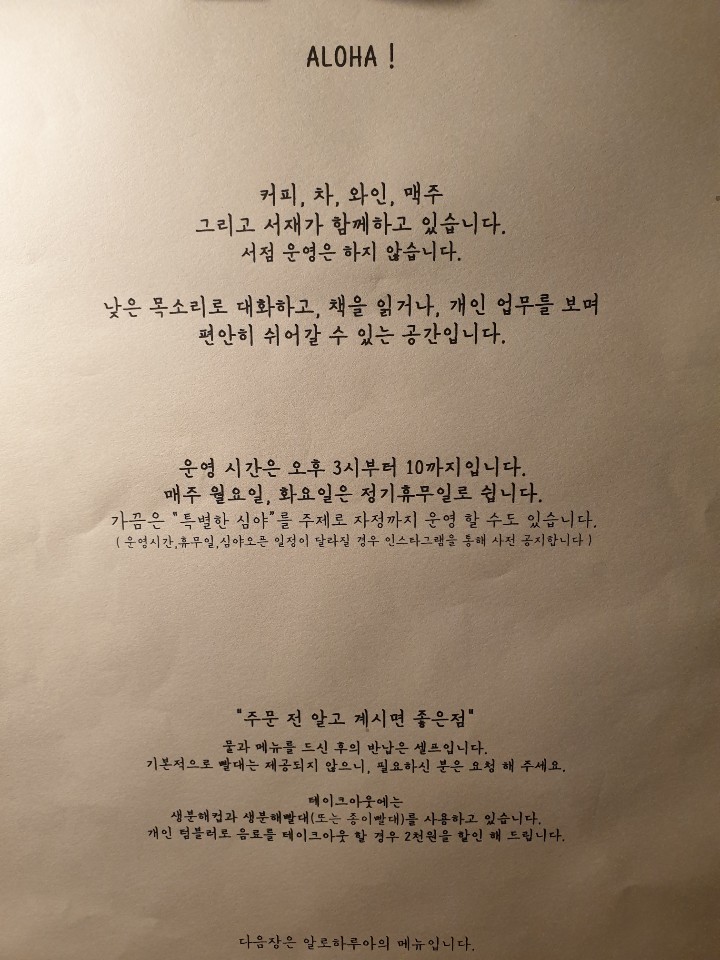 ALOHA !
커피, 차, 와인, 맥주
그리고 서재가 함께하고 있습니다.
서점 운영은 하지 않습니다.
낮은 목소리로 대화하고, 책을 읽거나, 개인 업무를 보며
편안히 쉬어갈 수 있는 공간입니다.
운영 시간은 오후 3시부터 10까지입니다.
매주 월요일, 화요일은 정기휴무일로 쉽니다.
가끔은 "특별한 심야"를 주제로 자정까지 운영 할 수도 있습니다.
( 운영시간,휴무일,심야오픈 일정이 달라질 경우 인스타그램을 통해 사전 공지합니다 )
"주문 전 알고 계시면 좋은점"
물과 메뉴를 드신 후의 반납은 셀프입니다.
기본적으로 빨대는 제공되지 않으니, 필요하신 분은 요청 해 주세요.
테이크아웃에는
생분해컵과 생분해빨대(또는 종이빨대)를 사용하고 있습니다.
개인 텀블러로 음료를 테이크아웃 할 경우 2천원을 할인 해 드립니다.
다음장은 알로하루아의 메뉴입니다.